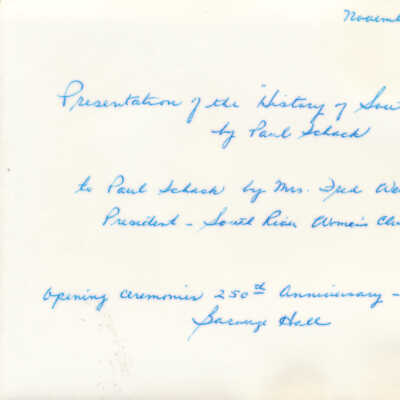 Novem
Presentation of the "History of Sou
by Paul Schack
to Paul Schack by Mrs. Fred We
President - South River Women's Clu
Opening Ceremonies 250th Anniversary -
Hall